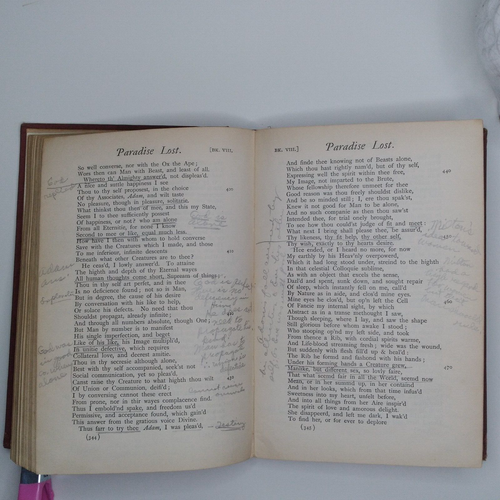 Paradise Lost. [BK. VIII.
So well converse, nor with the Ox the Ape;
Wors then can Man with Beast, and least of all.
Whereto th' Almighty answer'd, not displeas'd.
A nice and suttle happiness I see
Thou to thy self proposest, in the choice 400
Of thy Associates, Adam, and wilt taste
No pleasure, though in pleasure, solitarie.
What thinkst thou then of mee, and this my State,
Seem I to thee sufficiently possest
Of happiness, or not? who am alone
From all Eternitie, for none I know
Second to mee or like, equal much less.
How have I then with whom to hold converse
Save with the Creatures which I made, and those
To me inferiour, infinite descents 410
Beneath what other Creatures are to thee?
He ceas'd, I lowly answer'd. To attaine
The highth and depth of thy Eternal wayes
All human thoughts come short, Supream of things;
Thou in thy self art perfet, and in thee
Is no deficience found; not so is Man,
But in degree, the cause of his desire
By conversation with his like to help,
Or solace his defects. No need that thou
Shouldst propagat, already infinite; 420
And through all numbers absolute, though One;
But Man by number is to manifest
His single imperfection, and beget
Like of his like, his Image multipli'd,
In unitie defective, which requires
Collateral love, and deerest amitie.
Thou in thy secresie although alone,
Best with thy self accompanied, seek'st not
Social communication, yet so pleas'd,
Canst raise thy Creature to what highth thou wilt 430
Of Union or Communion, deifi'd;
I by conversing cannot these erect
From prone, nor in thir wayes complacence find.
Thus I embold'nd spake, and freedom us'd
Permissive, and acceptance found, which gain'd
This answer from the gratious voice Divine.
Thus farr to try thee, Adam, I was pleas'd,
(344)
BK. VIII.] Paradise Lost.
And finde thee knowing not of Beasts alone,
Which thou hast rightly nam'd, but of thy self,
Expressing well the spirit within thee free, 440
My Image, not imparted to the Brute,
Whose fellowship therefore unmeet for thee
Good reason was thou freely shouldst dislike,
And be so minded still; I, ere thou spak'st,
Knew it not good for Man to be alone,
And no such companie as then thou saw'st
Intended thee, for trial onely brought,
To see how thou could'st judge of fit and meet:
What next I bring shall please thee, be assur'd,
Thy likeness, thy fit help, thy other self, 450
Thy wish, exactly to thy hearts desire.
Hee ended, or I heard no more, for now
My earthly by his Heav'nly overpowerd,
Which it had long stood under, streind to the highth
In that celestial Colloquie sublime,
As with an object that excels the sense,
Dazl'd and spent, sunk down, and sought repair
Of sleep, which instantly fell on me, call'd
By Nature as in aide, and clos'd mine eyes.
Mine eyes he clos'd, but op'n left the Cell 460
Of Fancie my internal sight, by which
Abstract as in a transe methought I saw,
Though sleeping, where I lay, and saw the shape
Still glorious before whom awake I stood;
Who stooping op'nd my left side, and took
From thence a Rib, with cordial spirits warme,
And Life-blood streaming fresh; wide was the wound,
But suddenly with flesh fill'd up & heal'd:
The Rib he formd and fashond with his hands;
Under his forming hands a Creature grew, 470
Manlike, but different sex, so lovly faire,
That what seemd fair in all the World, seemd now
Mean, or in her summd up, in her containd
And in her looks, which from that time infus'd
Sweetness into my heart, unfelt before,
And into all things from her Aire inspir'd
The spirit of love and amorous delight.
She disappeerd, and left me dark, I wak'd
To find her, or for ever to deplore
(345)